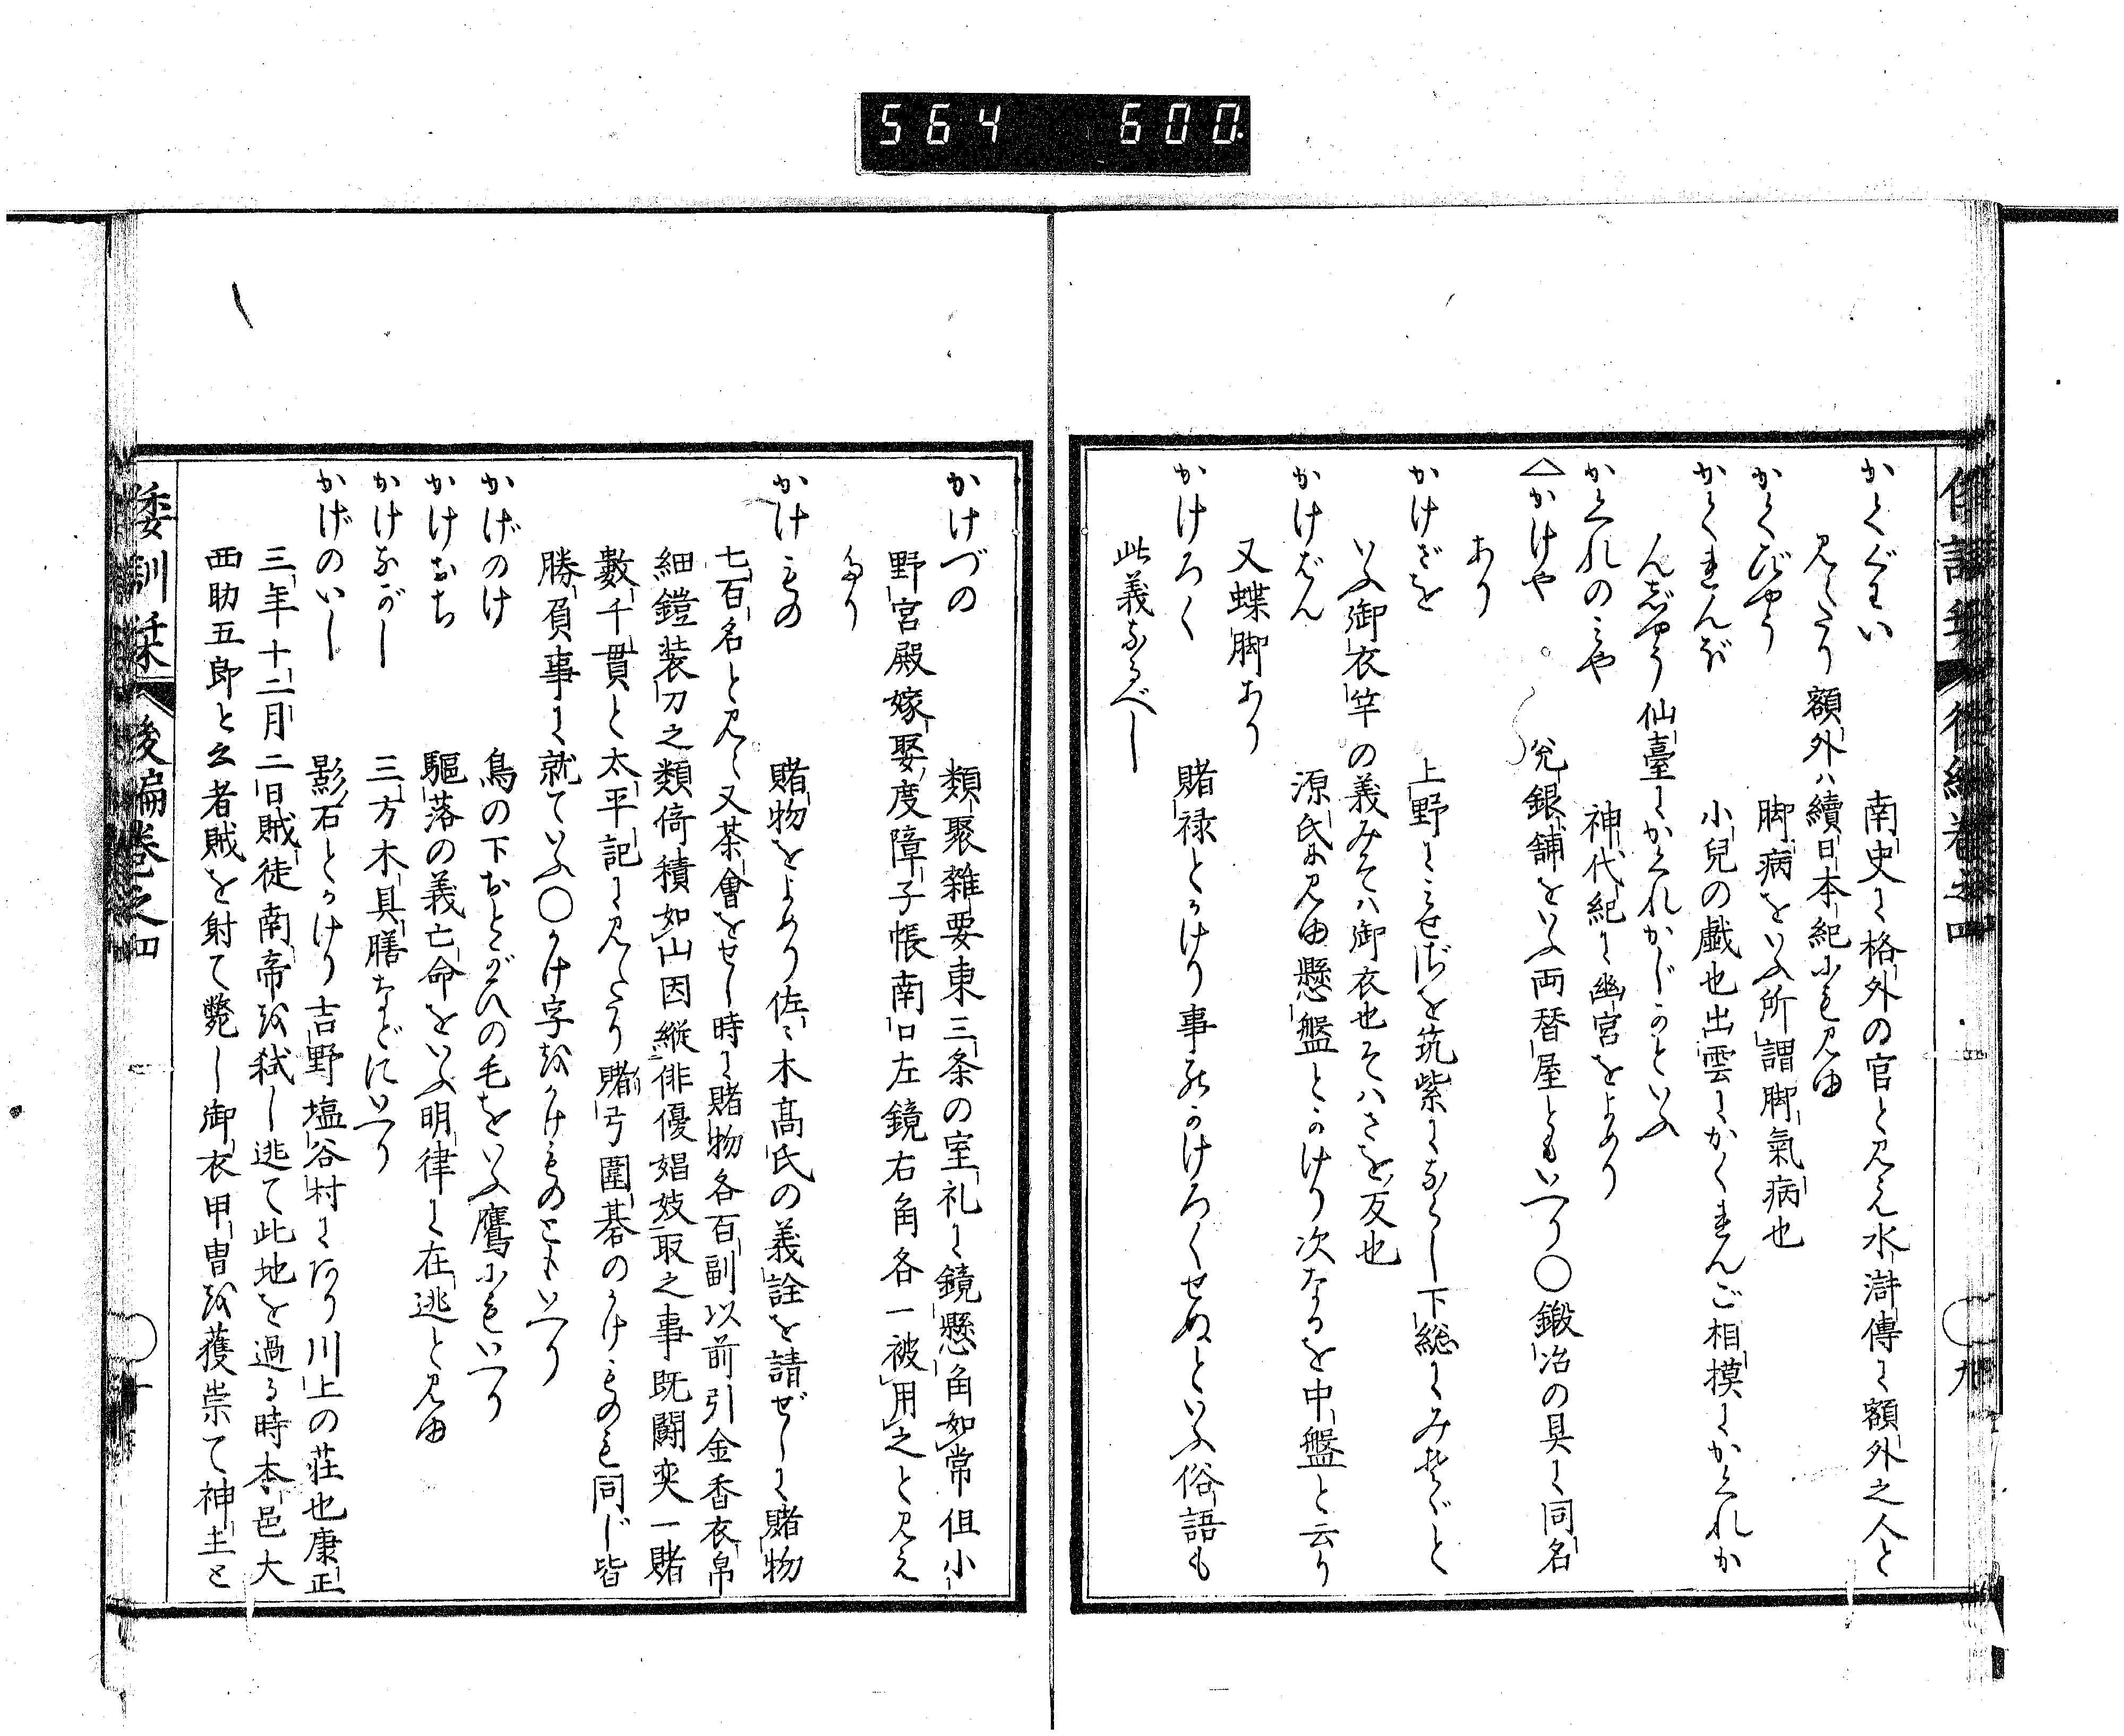 564 600
かくぐわい 南史に格外の官と見え水滸傳に額外之人と
見えたり額外ハ續日本紀にも見ゆ
かくびやう 脚病をいふ所謂脚氣病也
かくれんぼ 小兒の戯也出雲にかくれんご相摸にかくれか
んじやう仙臺にかくれかじかといふ
かくれのみや 神代紀に幽宮をよめり
△かけや 兌銀舗をいふ両替屋ともいへり○鍛冶の具に同名
あり
かけざを 上野にみせざを筑紫にならし下総にみそぞと
いふ御衣竿の義みそハ御衣也そハさを反也
かけばん 源氏に見ゆ懸盤とかけり次なるを中盤と云り
又蝶脚あり
かけろく 賭禄とかけり事をかけろくせぬといふ俗語も
此義なるべし
かけづの 類聚雜要東三条の室礼に鏡懸角如常但小
野宮殿嫁娶度障子帳南口左鏡右角各一被用之と見え
たり
かけもの 賭物をよめり佐々木髙氏の義詮を請ぜしに賭物
七百名と見え又茶會をせし時に賭物各百副以前引金香衣帛
細鎧装刀之類倚積如山因縦俳優娼妓取之事既闘奕一賭
數千貫と太平記に見えたり賭弓圍碁のかけものも同じ皆
勝負事に就ていふ○かけ字をかけものともいへり
かげのけ 鳥の下おとがひの毛をいふ鷹にもいへり
かけおち 驅落の義亡命をいふ明律に在逃と見ゆ
かけながし 三方木具膳などにいへり
かげのいし 影石とかけり吉野塩谷村にあり川上の荘也康正
三年十二月二日賊徒南帝を弑し逃て此地を過る時本邑大
西助五郎と云者賊を射て斃し御衣甲冑を獲祟て神主と
倭訓栞 後編巻之四